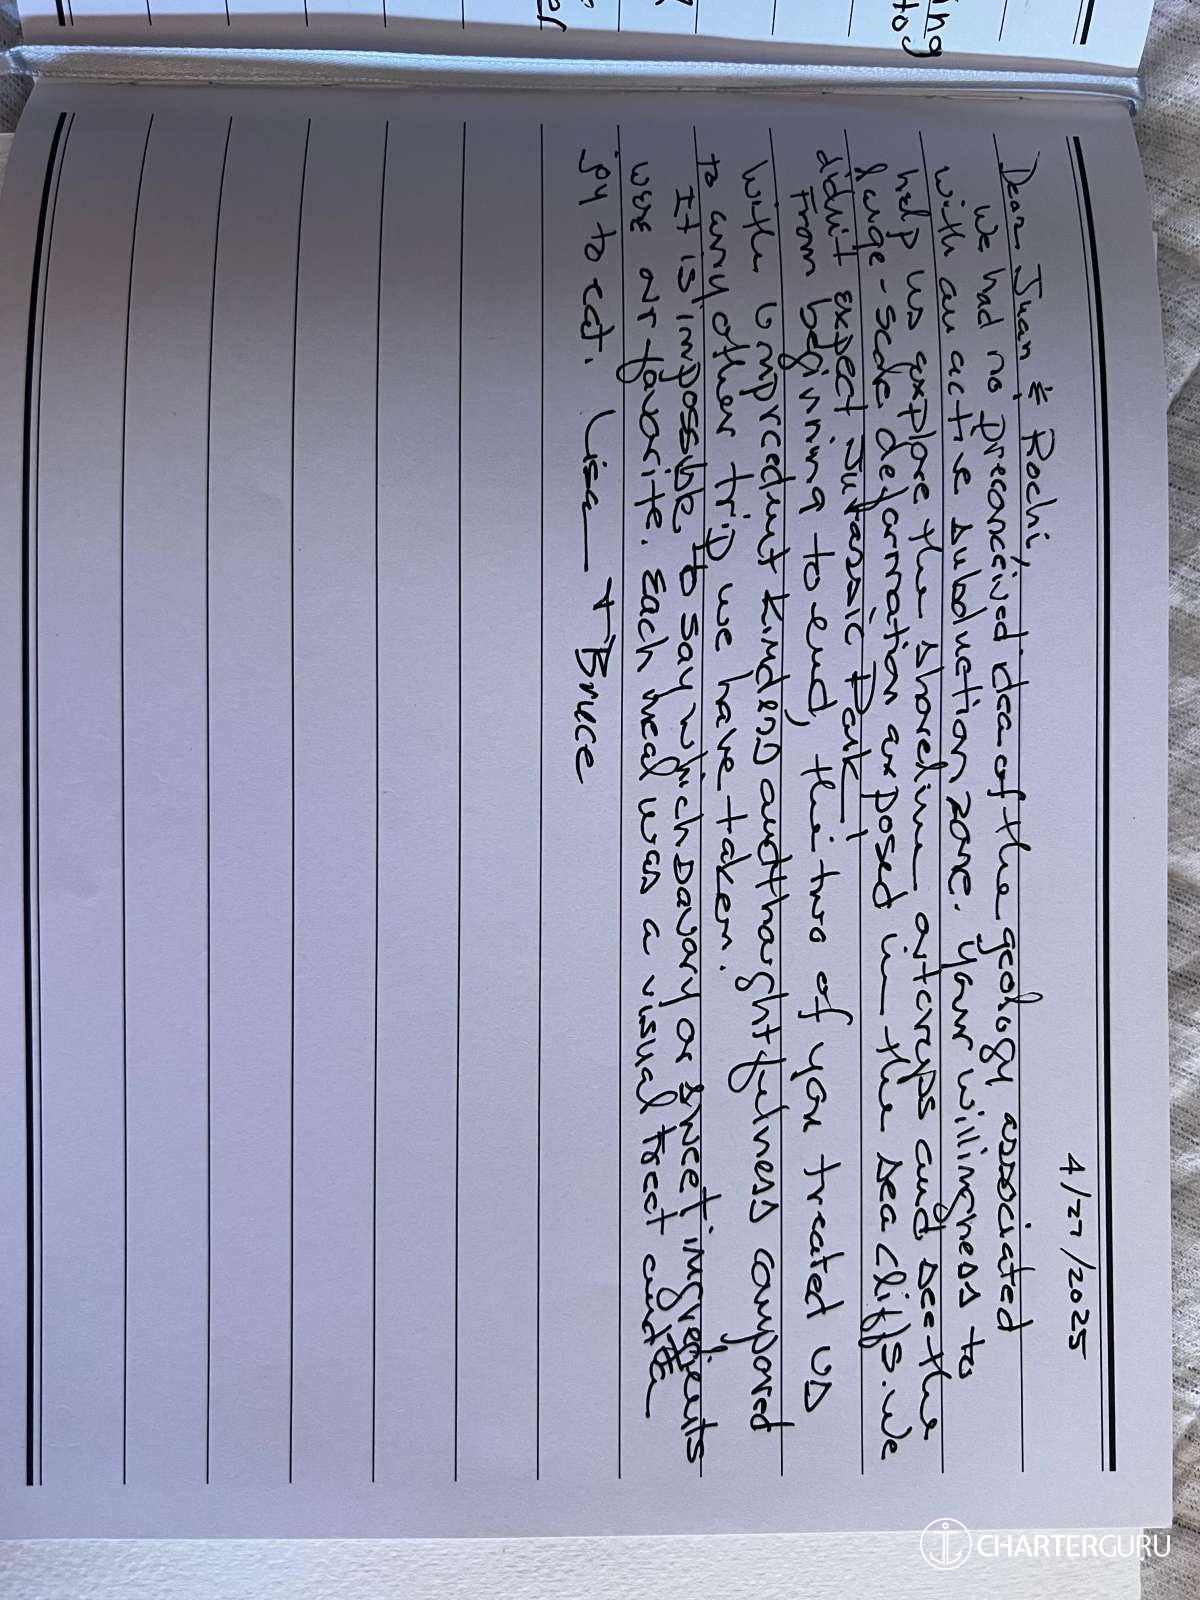 4/27/2025
Dear Juan & Rochi,
We had no preconceived idea of the geology associated
with an active subduction zone. Your willingness to
help us explore the shoreline outcrops and see the
large-scale deformation exposed in the sea cliffs. We
didn't expect Jurassic Park!
From beginning to end, the two of you treated us
with unprecedent kindess and thoughtfulness compared
to any other trip we have taken.
It is impossible to say which savory or sweet ingredients
were our favorite. Each meal was a visual treat and a
joy to eat. Lisa + Bruce
CHARTERGURU